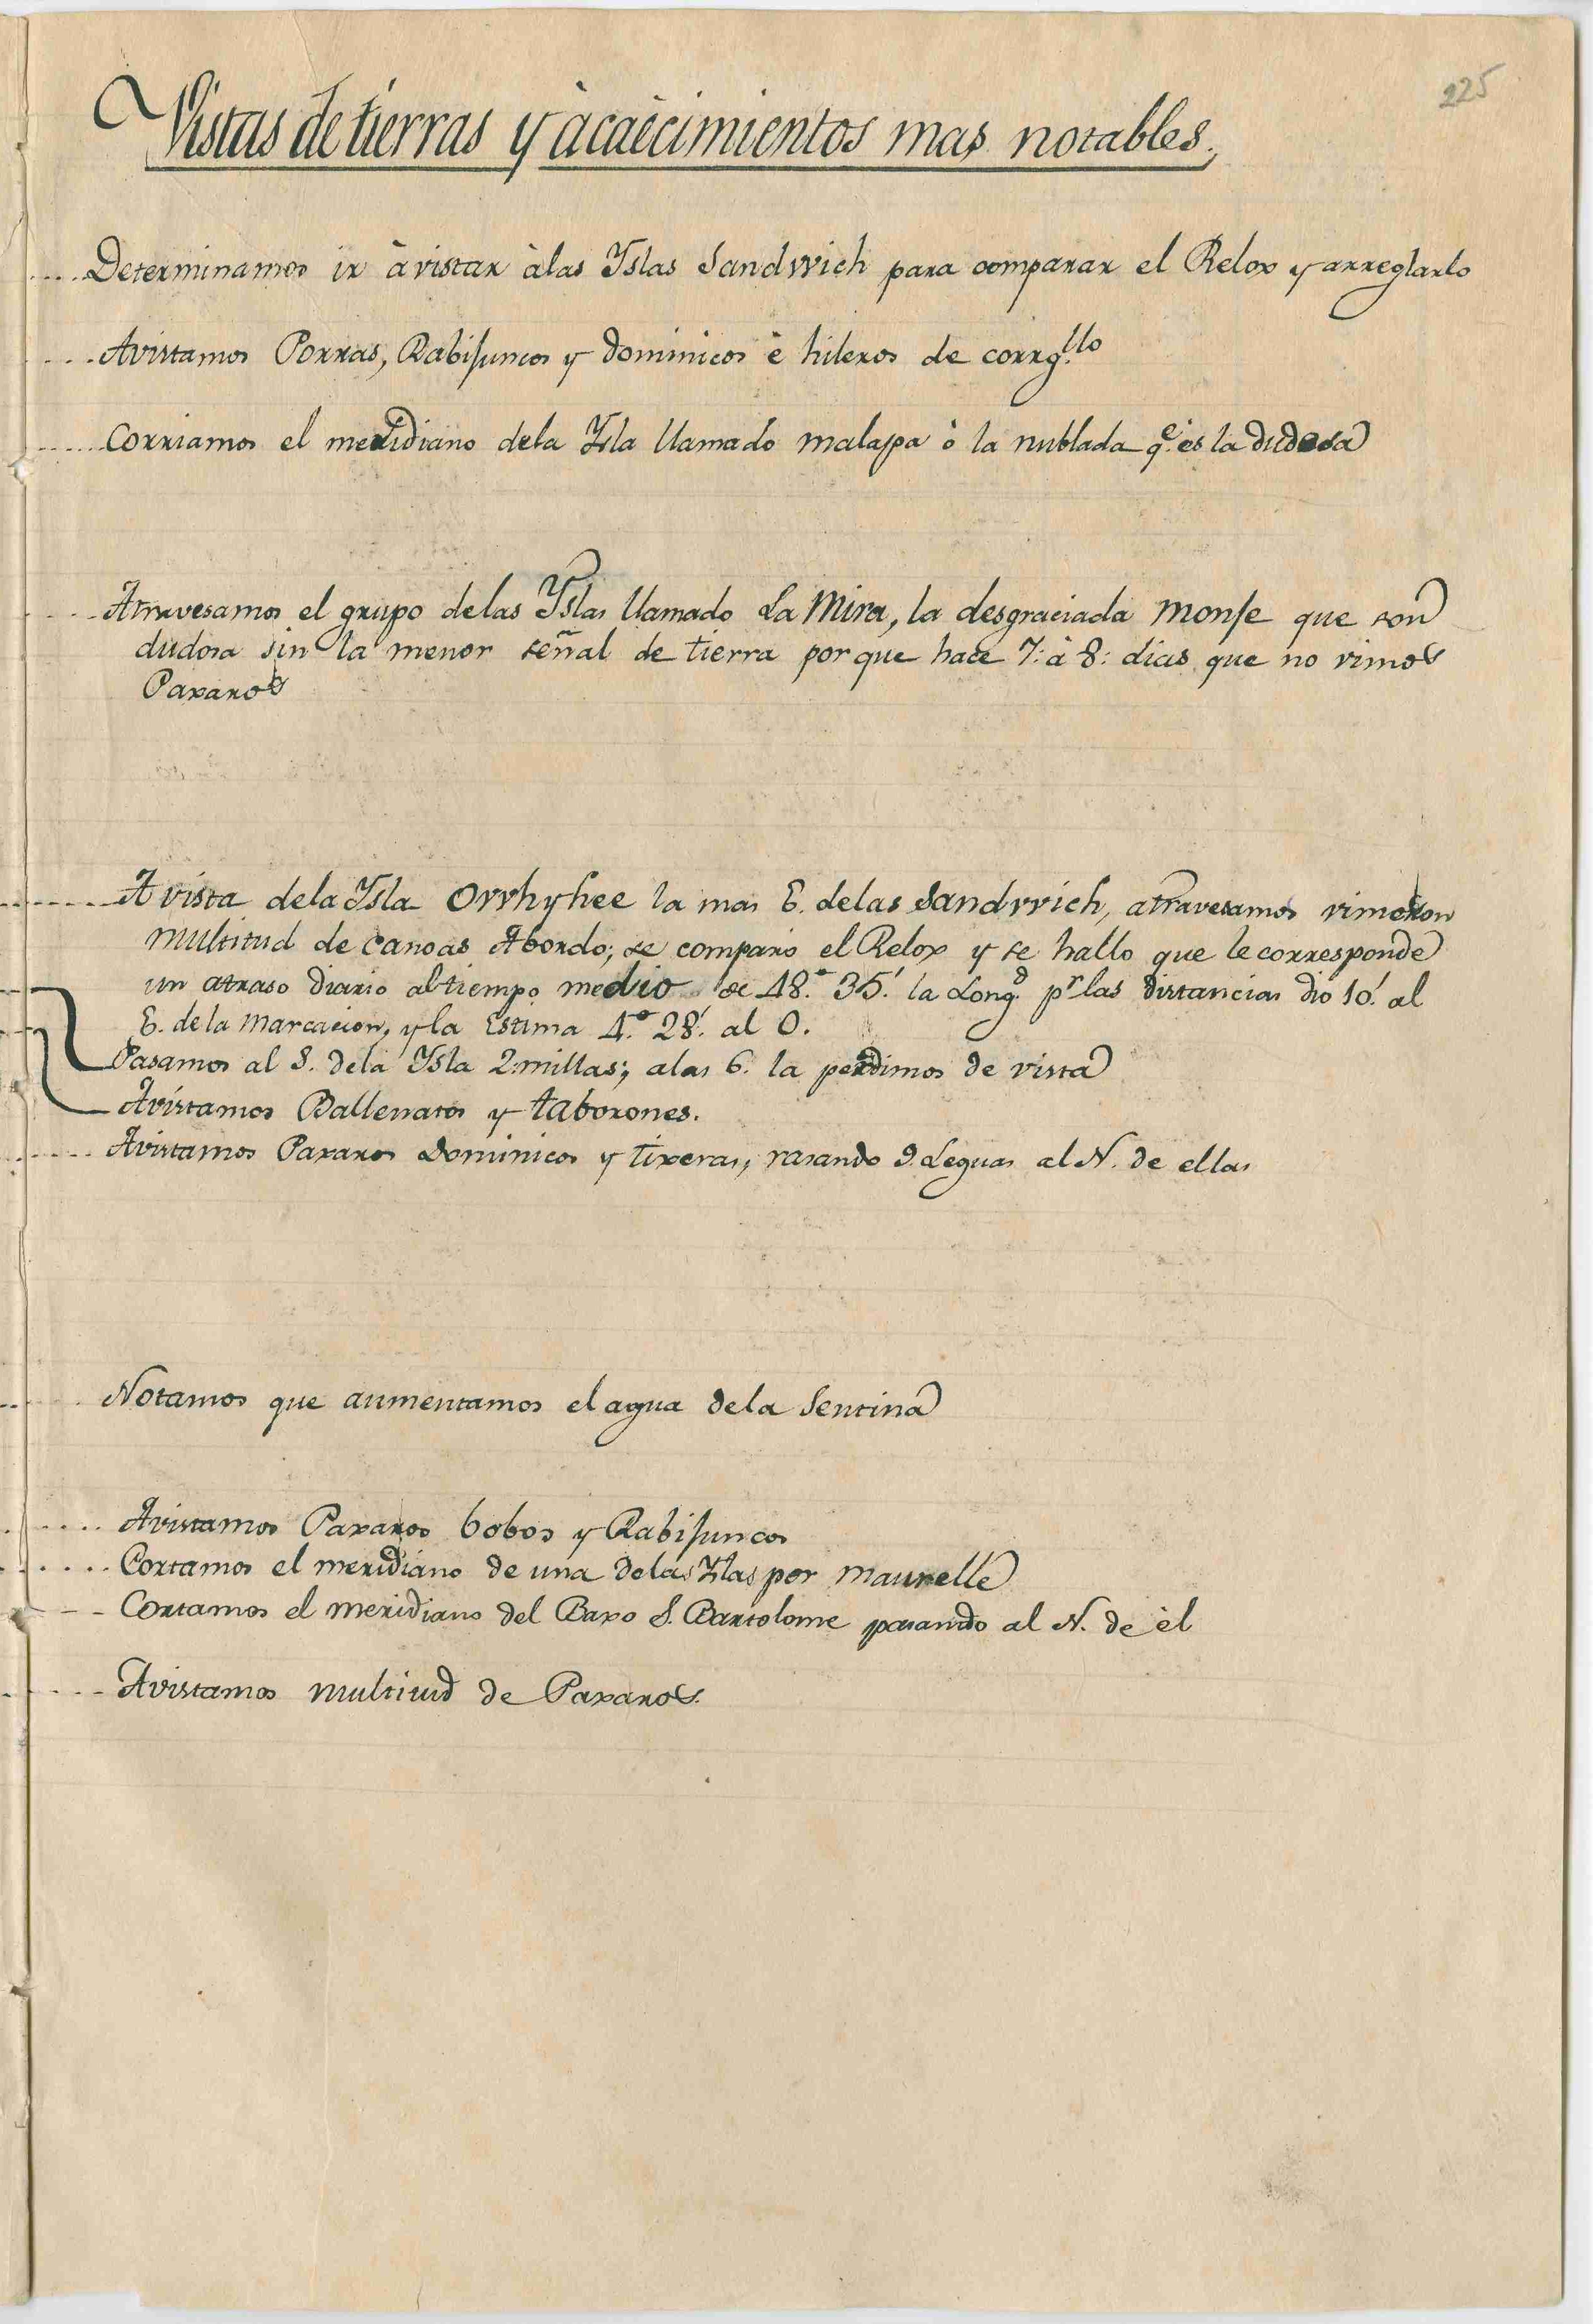 225
Vistas de tierras y àcaècimientos mas notables.
Determinamos ir àvistar àlas Yslas Sandwich para comparar el Relox y arreglarlo
Avistamos Porras, Rabijuncos y dominicos è hileros de corrg.llo
Corriamos el meridiano dela Ysla llamado malaspa ò la nublada q.e es la dudosa
Atravesamos el grupo delas Yslas llamado La Mira, la desgraciada Monje que son
dudosa sin la menor señal de tierra porque hace 7: à 8: dias que no vimos
Paxaros
A vista dela Ysla Owhyhee la mas E. delas Sandwich, atravesamos vimoron
multitud de canoas Abordo; se comparò el Relox y se hallo que le corresponde
un atraso diario al tiempo medio de 48.° 35.' la Long.d p.r las distancias diò 10.' al
E. de la marcacion, y la Estima 4.° 28.' al O.
Pasamos al S. dela Ysla 2. millas; alas 6. la perdimos de vista
Avistamos Ballenatos y taborones.
Avistamos Paxaros Dominicos y tixeras, rasando 9. Leguas al N. de ellas
Notamos que aumentamos el agua dela Sentina
Avistamos Paxaros bobos y Rabijuncos
Cortamos el meridiano de una delas Yslas por Maurelle
Cortamos el meridiano del Baxo S. Bartolome pasando al N. de èl
Avistamos multitud de Paxaros.